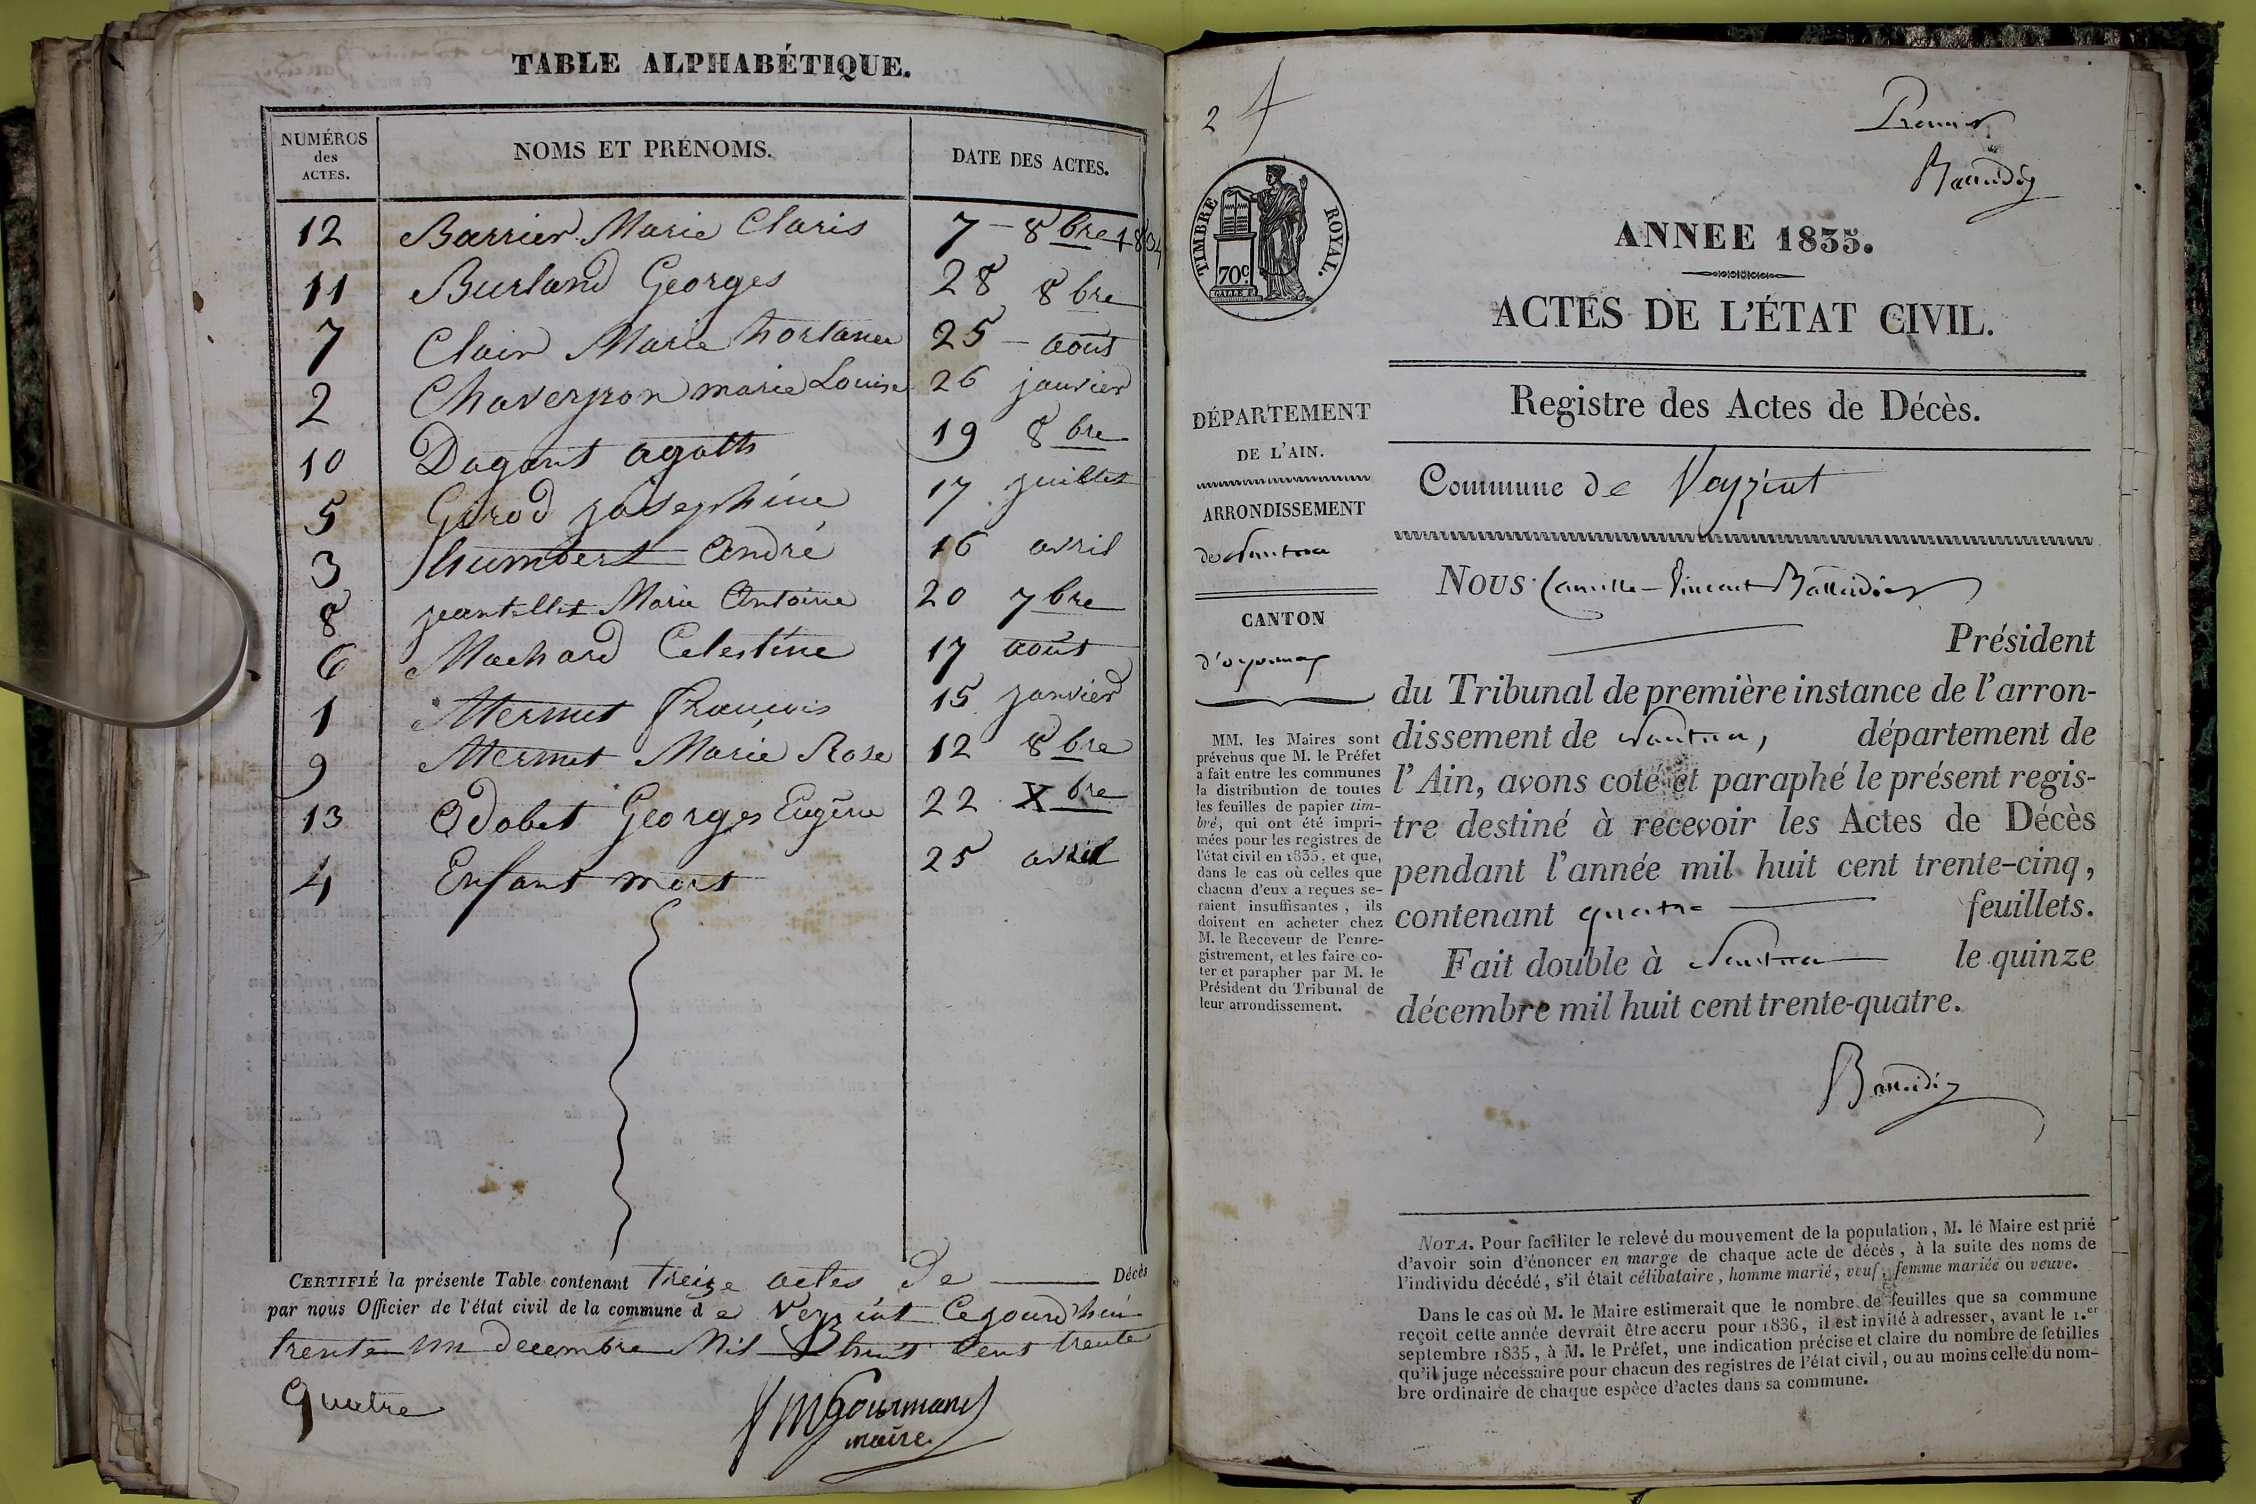 TABLE ALPHABÉTIQUE.
NUMÉROS des ACTES. NOMS ET PRÉNOMS. DATE DES ACTES.
12 Barrier Marie Claris 7 - 8bre 1834
11 Burland Georges 28 8bre
7 Clair Marie hortance 25 - aout
2 Chaveyron marie Louise 26 janvier
10 Dagant agatte 19 8bre
5 Girod josephine 17 juillet
3 humbert André 16 avril
8 jeantellet Marie Antoine 20 7bre
6 Machard Celestine 17 aout
1 Mermet François 15 janvier
9 Mermet Marie Rose 12 8bre
13 Odobet Georges Eugène 22 Xbre
4 Enfant mort 25 avril
CERTIFIÉ la présente Table contenant treize actes de Décès
par nous Officier de l'état civil de la commune de Veyziat Cejourd'hui
trente un decembre Mil huit Cent trente
Quatre
Gourmand
maire.
2
Premier
TIMBRE ROYAL.
70c
ANNÉE 1835.
ACTES DE L'ÉTAT CIVIL.
Registre des Actes de Décès.
DÉPARTEMENT
DE L'AIN.
ARRONDISSEMENT
de Nantua
CANTON
d'oyonnax
MM. les Maires sont
prévenus que M. le Préfet
a fait entre les communes
la distribution de toutes
les feuilles de papier tim-
bré, qui ont été impri-
mées pour les registres de
l'état civil en 1835, et que,
dans le cas où celles que
chacun d'eux a reçues se-
raient insuffisantes, ils
doivent en acheter chez
M. le Receveur de l'enre-
gistrement, et les faire co-
ter et parapher par M. le
Président du Tribunal de
leur arrondissement.
Commune de Veyziat
NOUS Camille-Vincent
Président
du Tribunal de première instance de l'arron-
dissement de Nantua, département de
l'Ain, avons coté et paraphé le présent regis-
tre destiné à recevoir les Actes de Décès
pendant l'année mil huit cent trente-cinq,
contenant quatre feuillets.
Fait double à Nantua le quinze
décembre mil huit cent trente-quatre.
NOTA. Pour faciliter le relevé du mouvement de la population, M. le Maire est prié
d'avoir soin d'énoncer en marge de chaque acte de décès, à la suite des noms de
l'individu décédé, s'il était célibataire, homme marié, veuf, femme mariée ou veuve.
Dans le cas où M. le Maire estimerait que le nombre de feuilles que sa commune
reçoit cette année devrait être accru pour 1836, il est invité à adresser, avant le 1.er
septembre 1835, à M. le Préfet, une indication précise et claire du nombre de feuilles
qu'il juge nécessaire pour chacun des registres de l'état civil, ou au moins celle du nom-
bre ordinaire de chaque espèce d'actes dans sa commune.